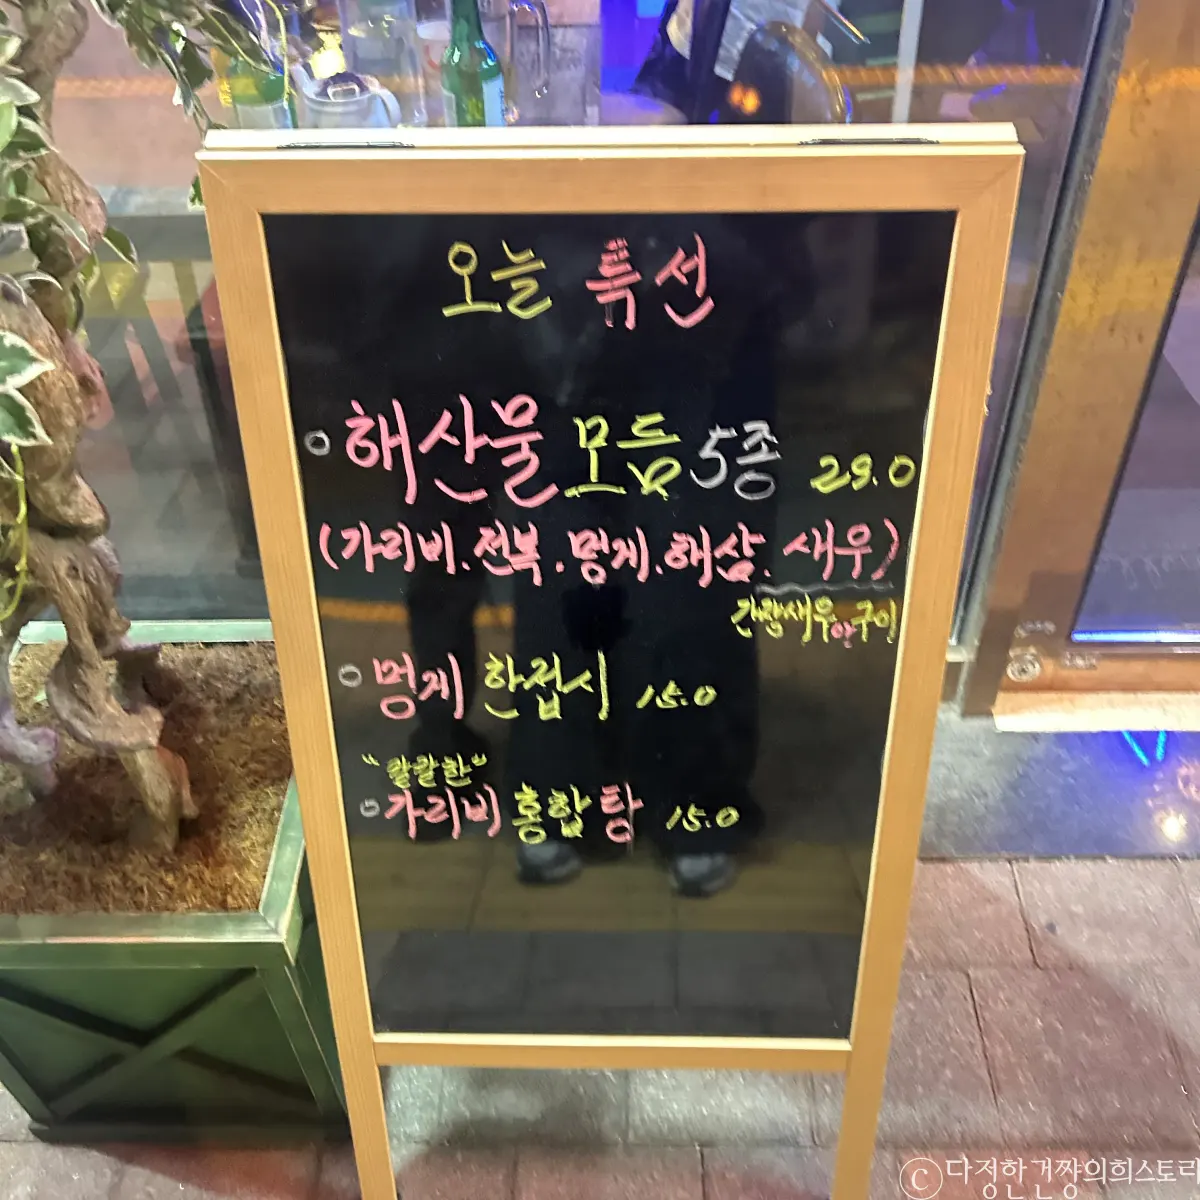 오늘 특선
해산물 모듬 5종 29.0
(가리비.전복.멍게.해삼.새우)
간장새우or구이
멍게 한접시 15.0
"칼칼한"
가리비 홍합탕 15.0
ⓒ다정한건짱의희스토리